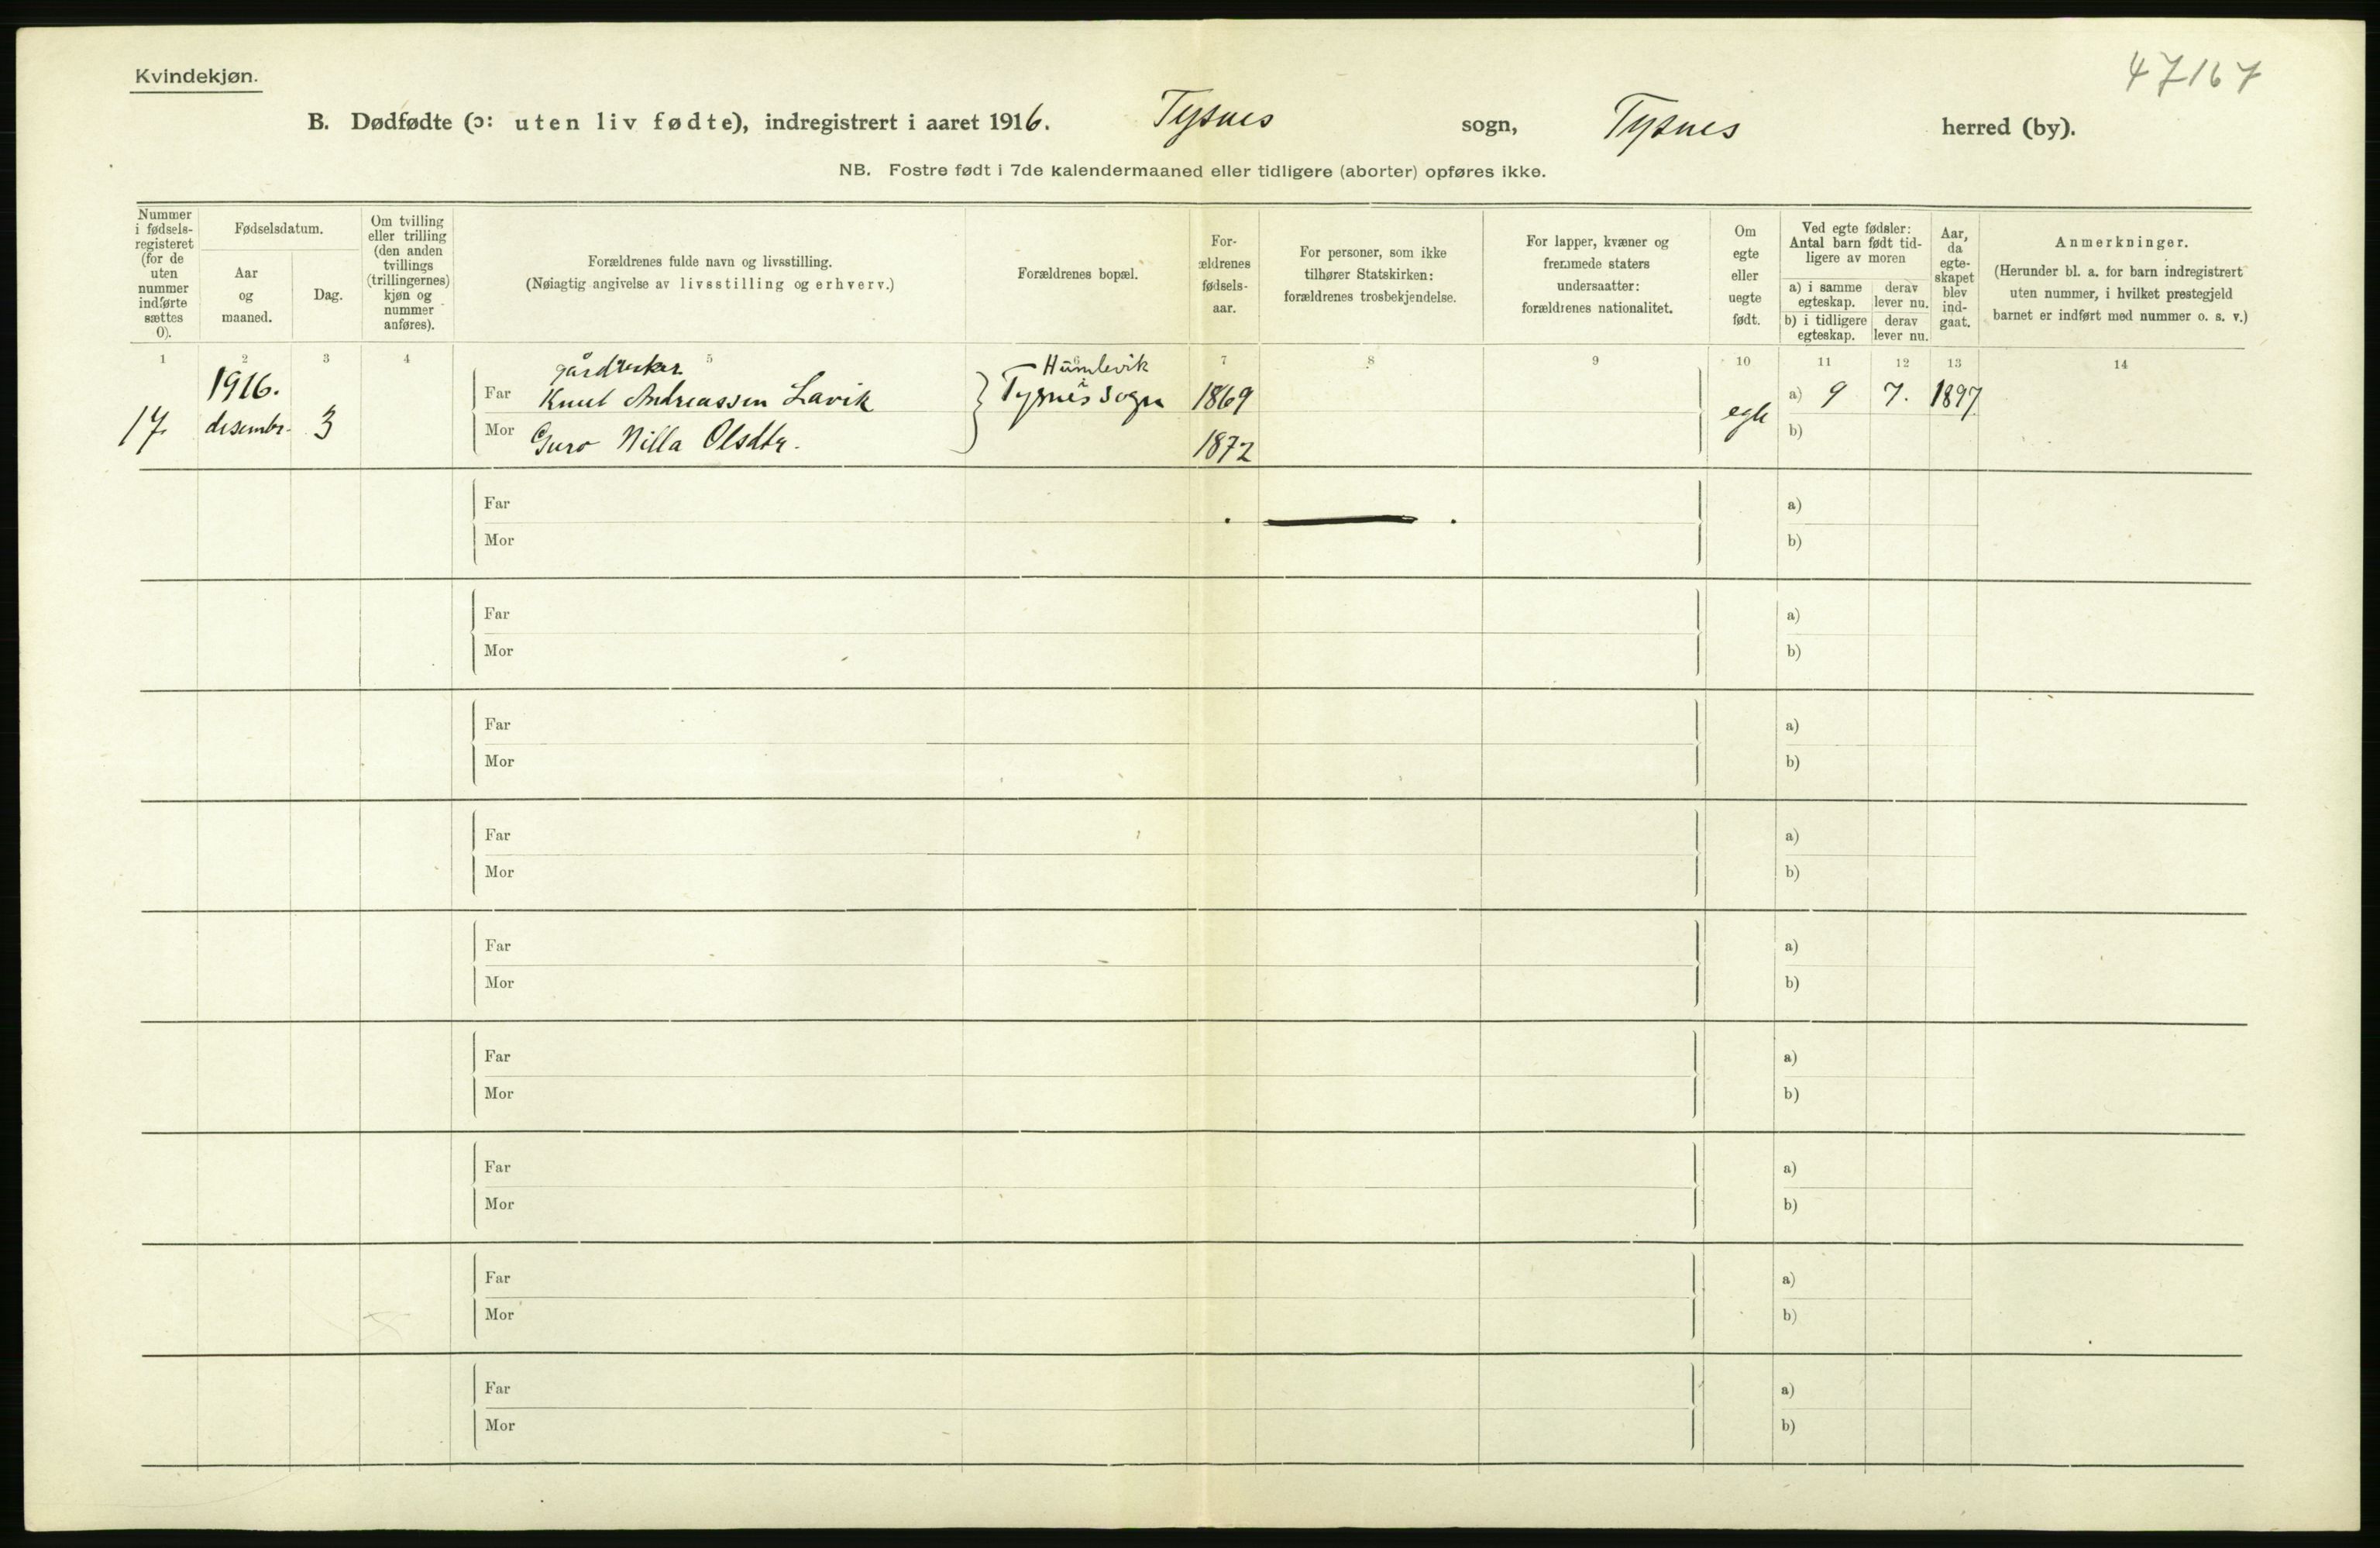 Kvindekjøn.
47167
B. Dødfødte (ɔ: uten liv fødte), indregistrert i aaret 1916. Tysnes sogn, Tysnes herred (by).
NB. Fostre født i 7de kalendermaaned eller tidligere (aborter) opføres ikke.
Nummer
i fødsels-
registeret
(for de
uten
nummer
indførte
sættes
0).
Fødselsdatum.
Aar
og
maaned.
Dag.
Om tvilling
eller trilling
(den anden
tvillings
(trillingernes)
kjøn og
nummer
anføres).
Forældrenes fulde navn og livsstilling.
(Nøiagtig angivelse av livsstilling og erhverv.)
Forældrenes bopæl.
For-
ældrenes
fødsels-
aar.
For personer, som ikke
tilhører Statskirken:
forældrenes trosbekjendelse.
For lapper, kvæner og
fremmede staters
undersaatter:
forældrenes nationalitet.
Om
egte
eller
uegte
født.
Ved egte fødsler:
Antal barn født tid-
ligere av moren
a) i samme
egteskap.
derav
lever nu.
b) i tidligere
egteskap.
derav
lever nu.
Aar,
da
egte-
skapet
blev
ind-
gaat.
Anmerkninger.
(Herunder bl. a. for barn indregistrert
uten nummer, i hvilket prestegjeld
barnet er indført med nummer o. s. v.)
1 2 3 4 5 6 7 8 9 10 11 12 13 14
1916. gårdbruker Humlevik
Far Knut Andreassen Lavik i Tysnes sogn 1869 a) 9 7. 1897
17. desembr. 3 egte
Mor Guro Nilla Olsdtr. 1872 b)
Far a)
Mor b)
Far a)
Mor b)
Far a)
Mor b)
Far a)
Mor b)
Far a)
Mor b)
Far a)
Mor b)
Far a)
Mor b)
Far a)
Mor b)
Far a)
Mor b)